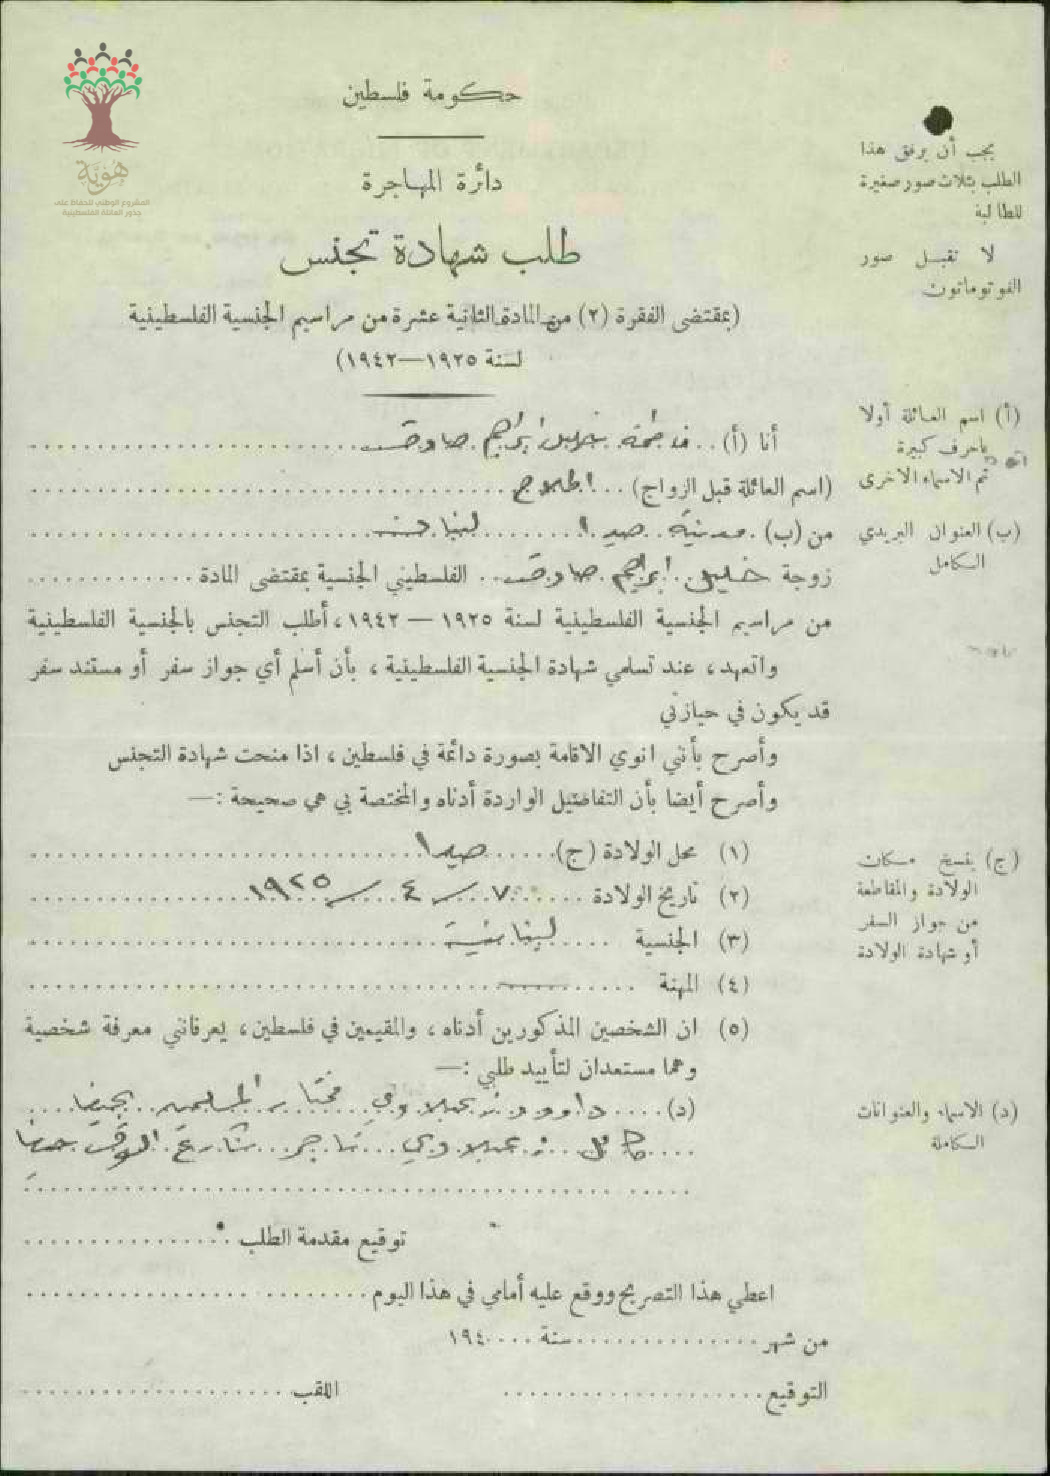 هُويَّة
المشروع الوطني للحفاظ على
جذور العائلة الفلسطينية
حكومة فلسطين
دائرة المهاجرة
طلب شهادة تجنس
(بمقتضى الفقرة (٢) من المادة الثانية عشرة من مراسيم الجنسية الفلسطينية
لسنة ١٩٢٥—١٩٤٢)
يجب أن يرفق هذا
الطلب بثلاث صور صغيرة
للطالبة
لا تقبل صور
الفوتوماتون
(أ) اسم العائلة أولا
باحرف كبيرة
ثم الاسماء الاخرى
(ب) العنوان البريدي
الكامل
أنا (أ) .. فاطمة خليل ابراهيم صادق
(اسم العائلة قبل الزواج) ...
من (ب) . مدينة صيدا ...... لبنان
زوجة خليل ابراهيم صادق .. الفلسطيني الجنسية بمقتضى المادة ............
من مراسيم الجنسية الفلسطينية لسنة ١٩٢٥ — ١٩٤٢، أطلب التجنس بالجنسية الفلسطينية
واتعهد، عند تسلمي شهادة الجنسية الفلسطينية، بأن أسلم أي جواز سفر أو مستند سفر
قد يكون في حيازتي
وأصرح بأنني انوي الاقامة بصورة دائمة في فلسطين، اذا منحت شهادة التجنس
وأصرح أيضا بأن التفاصيل الواردة أدناه والمختصة بي هي صحيحة :—
(١) محل الولادة (ج) ...... صيدا
(٢) تاريخ الولادة ...... ٧ / ٤ / ١٩٢٥
(٣) الجنسية .... لبنانية
(٤) المهنة ......
(٥) ان الشخصين المذكورين أدناه، والمقيمين في فلسطين، يعرفانني معرفة شخصية
وهما مستعدان لتأييد طلبي :—
(د) .... داوود زعبلاوي مختار المسلمين بحيفا
كامل زعبلاوي تاجر شارع حيفا
(ج) ينسخ مكان
الولادة والمقاطعة
من جواز السفر
أو شهادة الولادة
(د) الاسماء والعنوانات
الكاملة
توقيع مقدمة الطلب ................
اعطي هذا التصريح ووقع عليه أمامي في هذا اليوم ................
من شهر ................ سنة .... ١٩٤
التوقيع .................... اللقب ....................